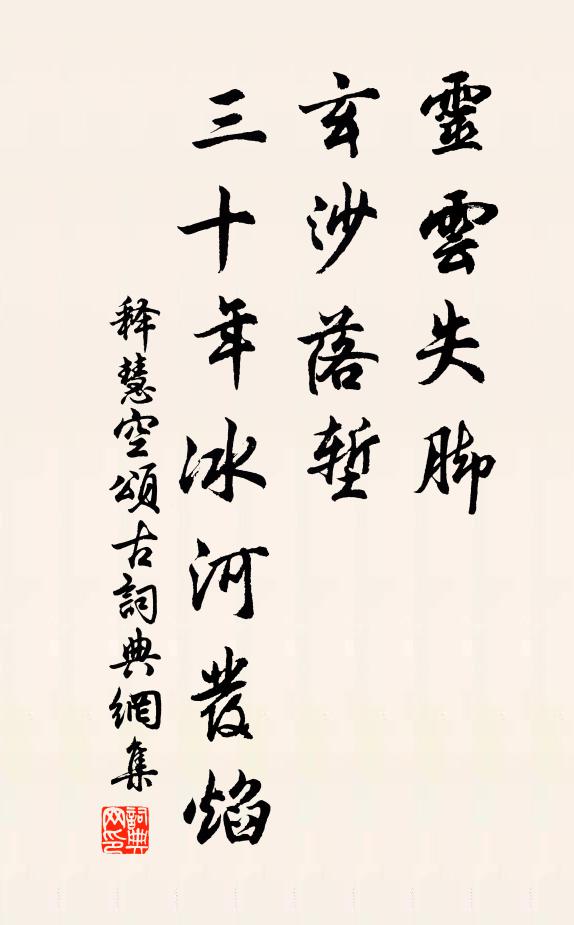 靈雲失脚
玄沙落塹
三十年冰河發焰
释慧空頌古詞典網集
詞典網印